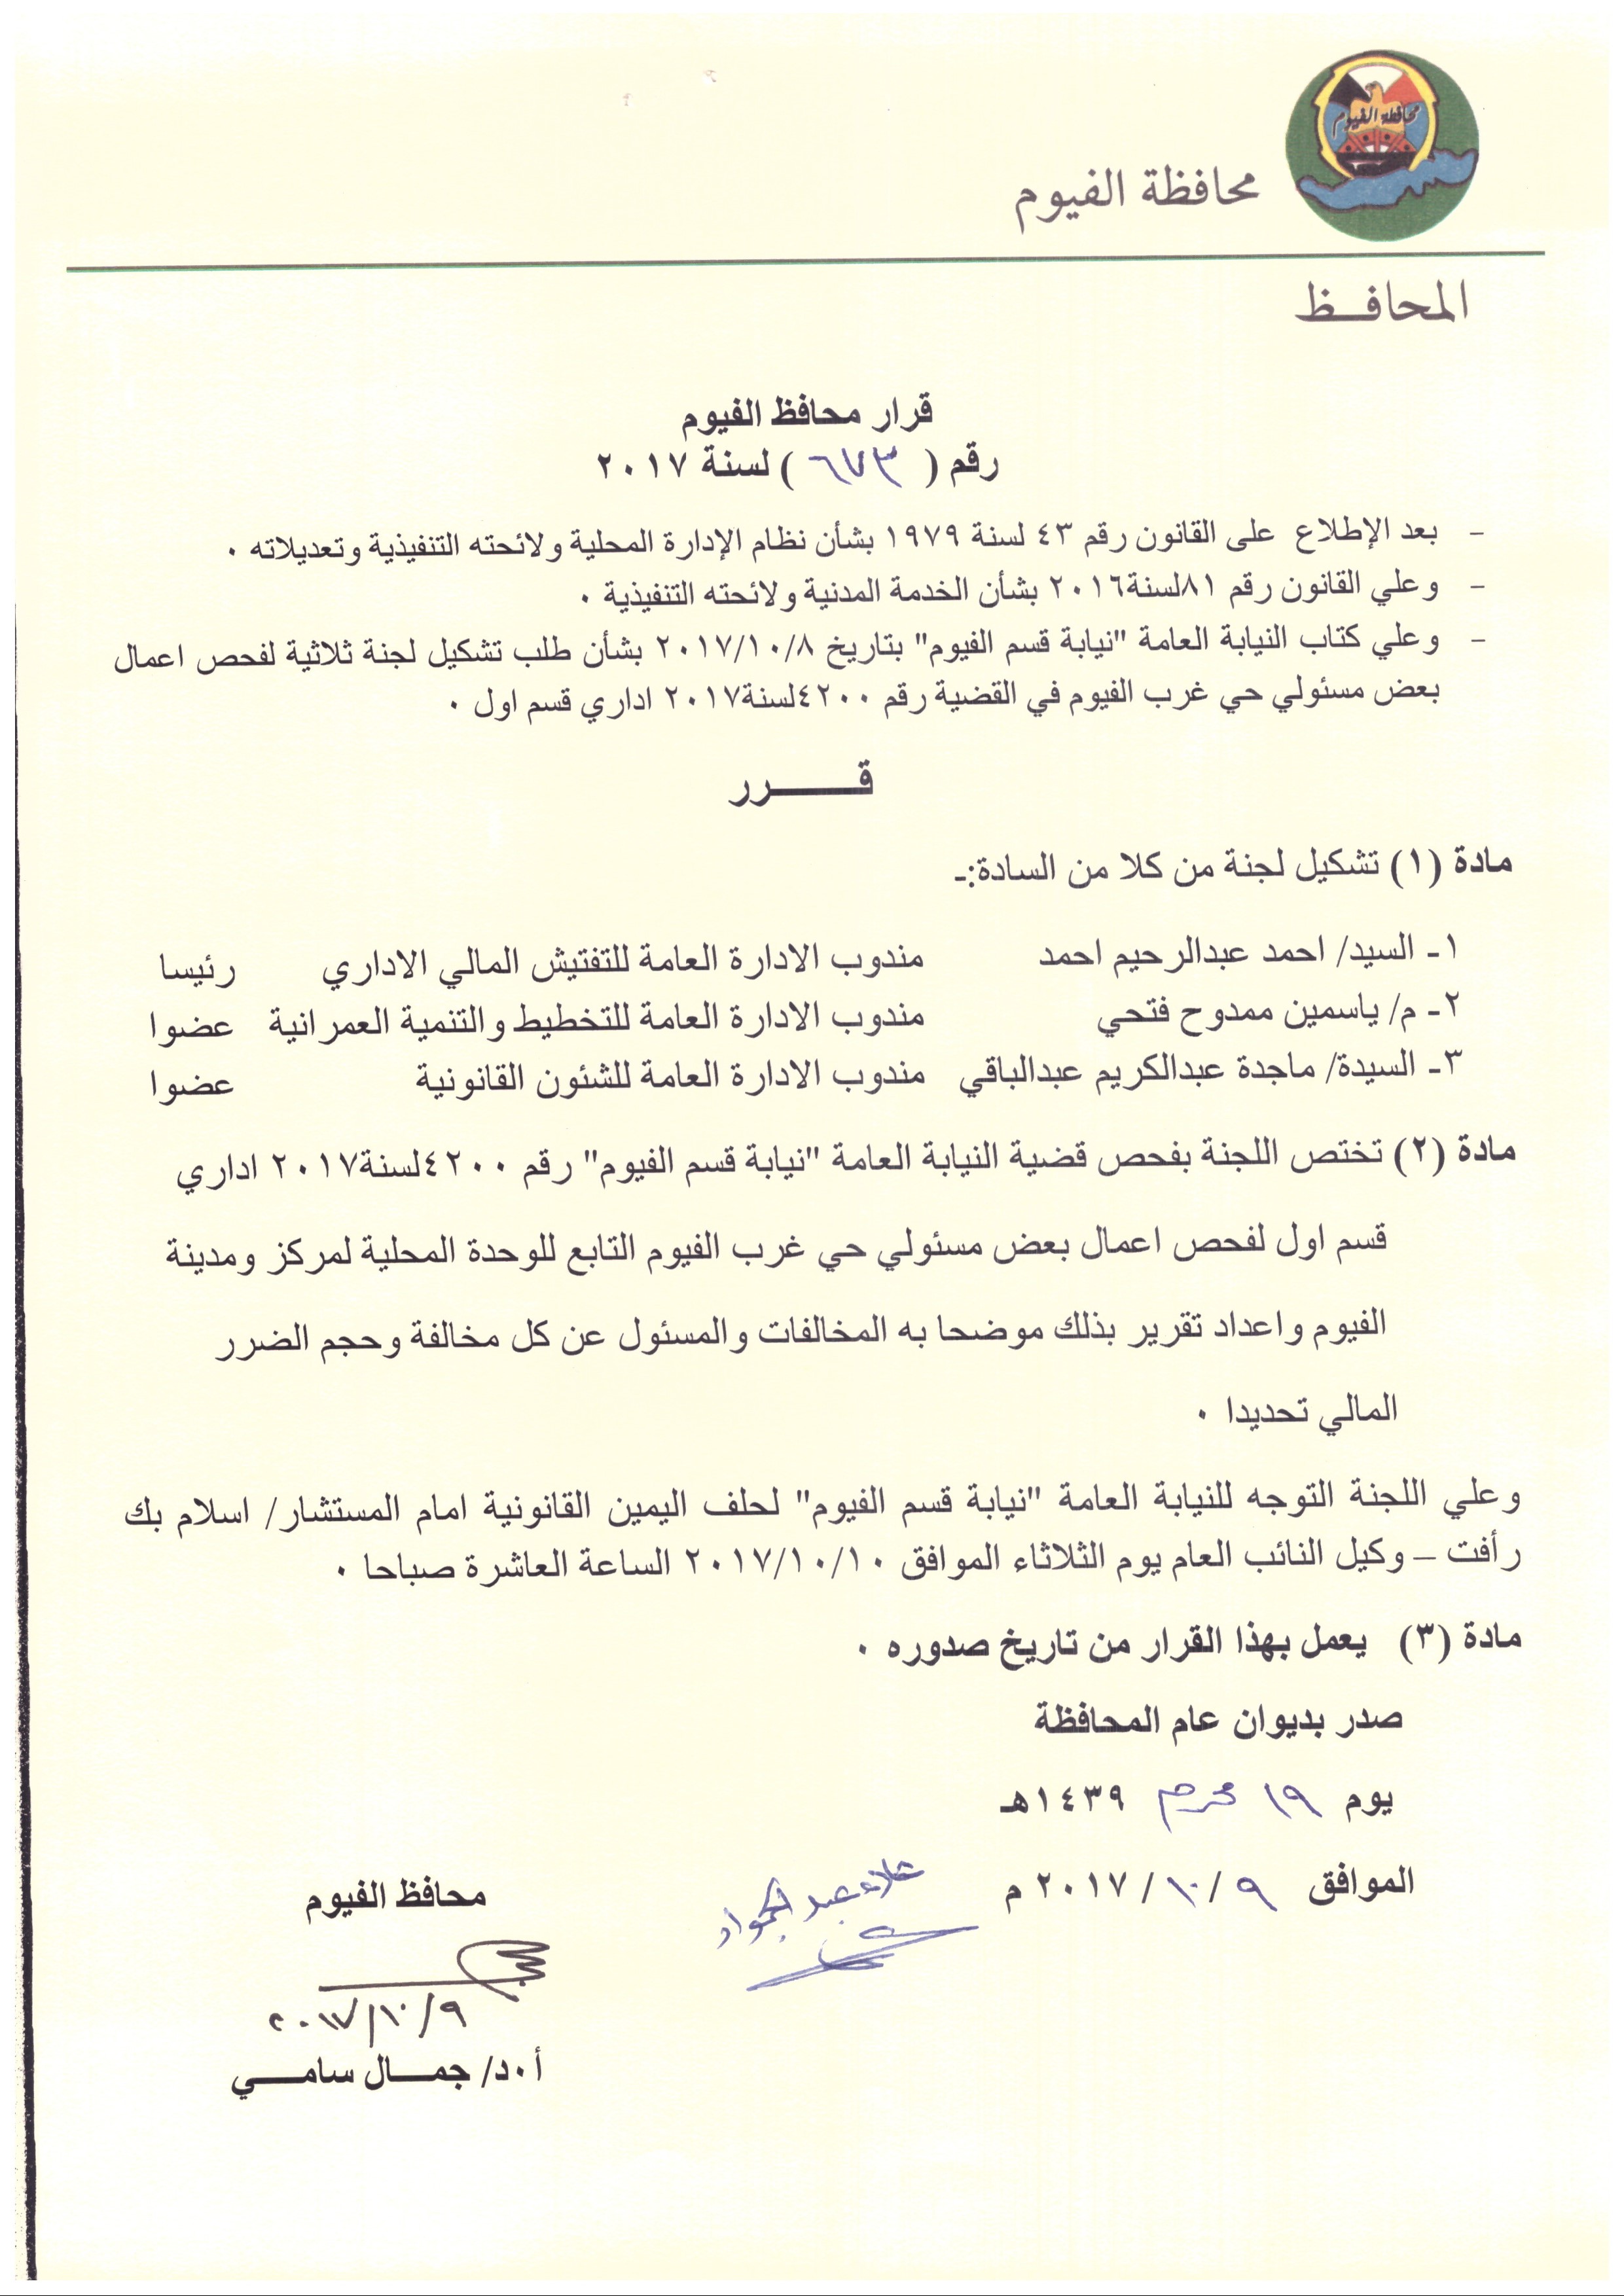 محافظة الفيوم
محافظة الفيوم
المحافـــظ
قرار محافظ الفيوم
رقم ( ٦٧٣ ) لسنة ٢٠١٧
- بعد الإطلاع على القانون رقم ٤٣ لسنة ١٩٧٩ بشأن نظام الإدارة المحلية ولائحته التنفيذية وتعديلاته ٠
- وعلي القانون رقم ٨١لسنة٢٠١٦ بشأن الخدمة المدنية ولائحته التنفيذية ٠
- وعلي كتاب النيابة العامة "نيابة قسم الفيوم" بتاريخ ٢٠١٧/١٠/٨ بشأن طلب تشكيل لجنة ثلاثية لفحص اعمال
بعض مسئولي حي غرب الفيوم في القضية رقم ٤٢٠٠لسنة٢٠١٧ اداري قسم اول ٠
قـــــــرر
مادة (١) تشكيل لجنة من كلا من السادة:ـ
١ـ السيد/ احمد عبدالرحيم احمد مندوب الادارة العامة للتفتيش المالي الاداري رئيسا
٢ـ م/ ياسمين ممدوح فتحي مندوب الادارة العامة للتخطيط والتنمية العمرانية عضوا
٣ـ السيدة/ ماجدة عبدالكريم عبدالباقي مندوب الادارة العامة للشئون القانونية عضوا
مادة (٢) تختص اللجنة بفحص قضية النيابة العامة "نيابة قسم الفيوم" رقم ٤٢٠٠لسنة٢٠١٧ اداري
قسم اول لفحص اعمال بعض مسئولي حي غرب الفيوم التابع للوحدة المحلية لمركز ومدينة
الفيوم واعداد تقرير بذلك موضحا به المخالفات والمسئول عن كل مخالفة وحجم الضرر
المالي تحديدا ٠
وعلي اللجنة التوجه للنيابة العامة "نيابة قسم الفيوم" لحلف اليمين القانونية امام المستشار/ اسلام بك
رأفت – وكيل النائب العام يوم الثلاثاء الموافق ٢٠١٧/١٠/١٠ الساعة العاشرة صباحا ٠
مادة (٣) يعمل بهذا القرار من تاريخ صدوره ٠
صدر بديوان عام المحافظة
يوم ١٩ محرم ١٤٣٩هـ
الموافق ٩ / ١٠ / ٢٠١٧ م
علاء عبد الجواد
محافظ الفيوم
٢٠١٧/١٠/٩
أ٠د/ جمـــال سامـــي